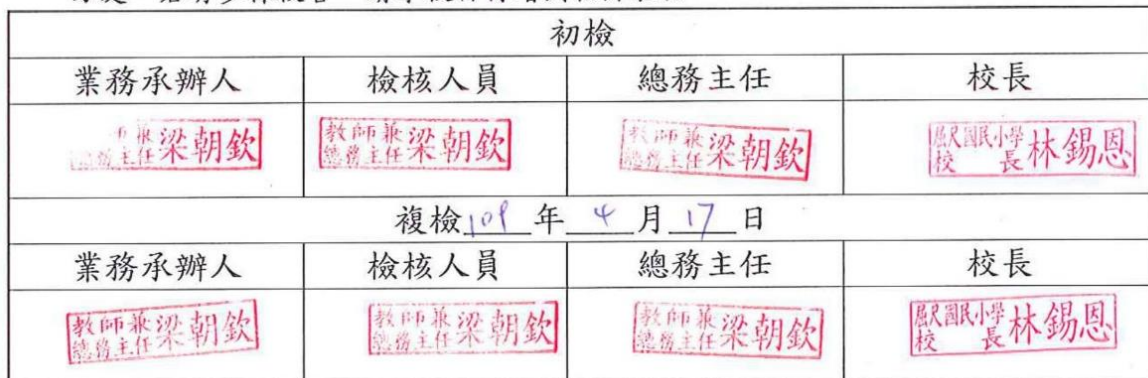 初檢
業務承辦人 檢核人員 總務主任 校長
主任 梁朝欽 教師兼總務主任 梁朝欽 教師兼總務主任 梁朝欽 屈尺國民小學校長 林錫恩
複檢109年4月17日
業務承辦人 檢核人員 總務主任 校長
教師兼總務主任 梁朝欽 教師兼總務主任 梁朝欽 教師兼總務主任 梁朝欽 屈尺國民小學校長 林錫恩